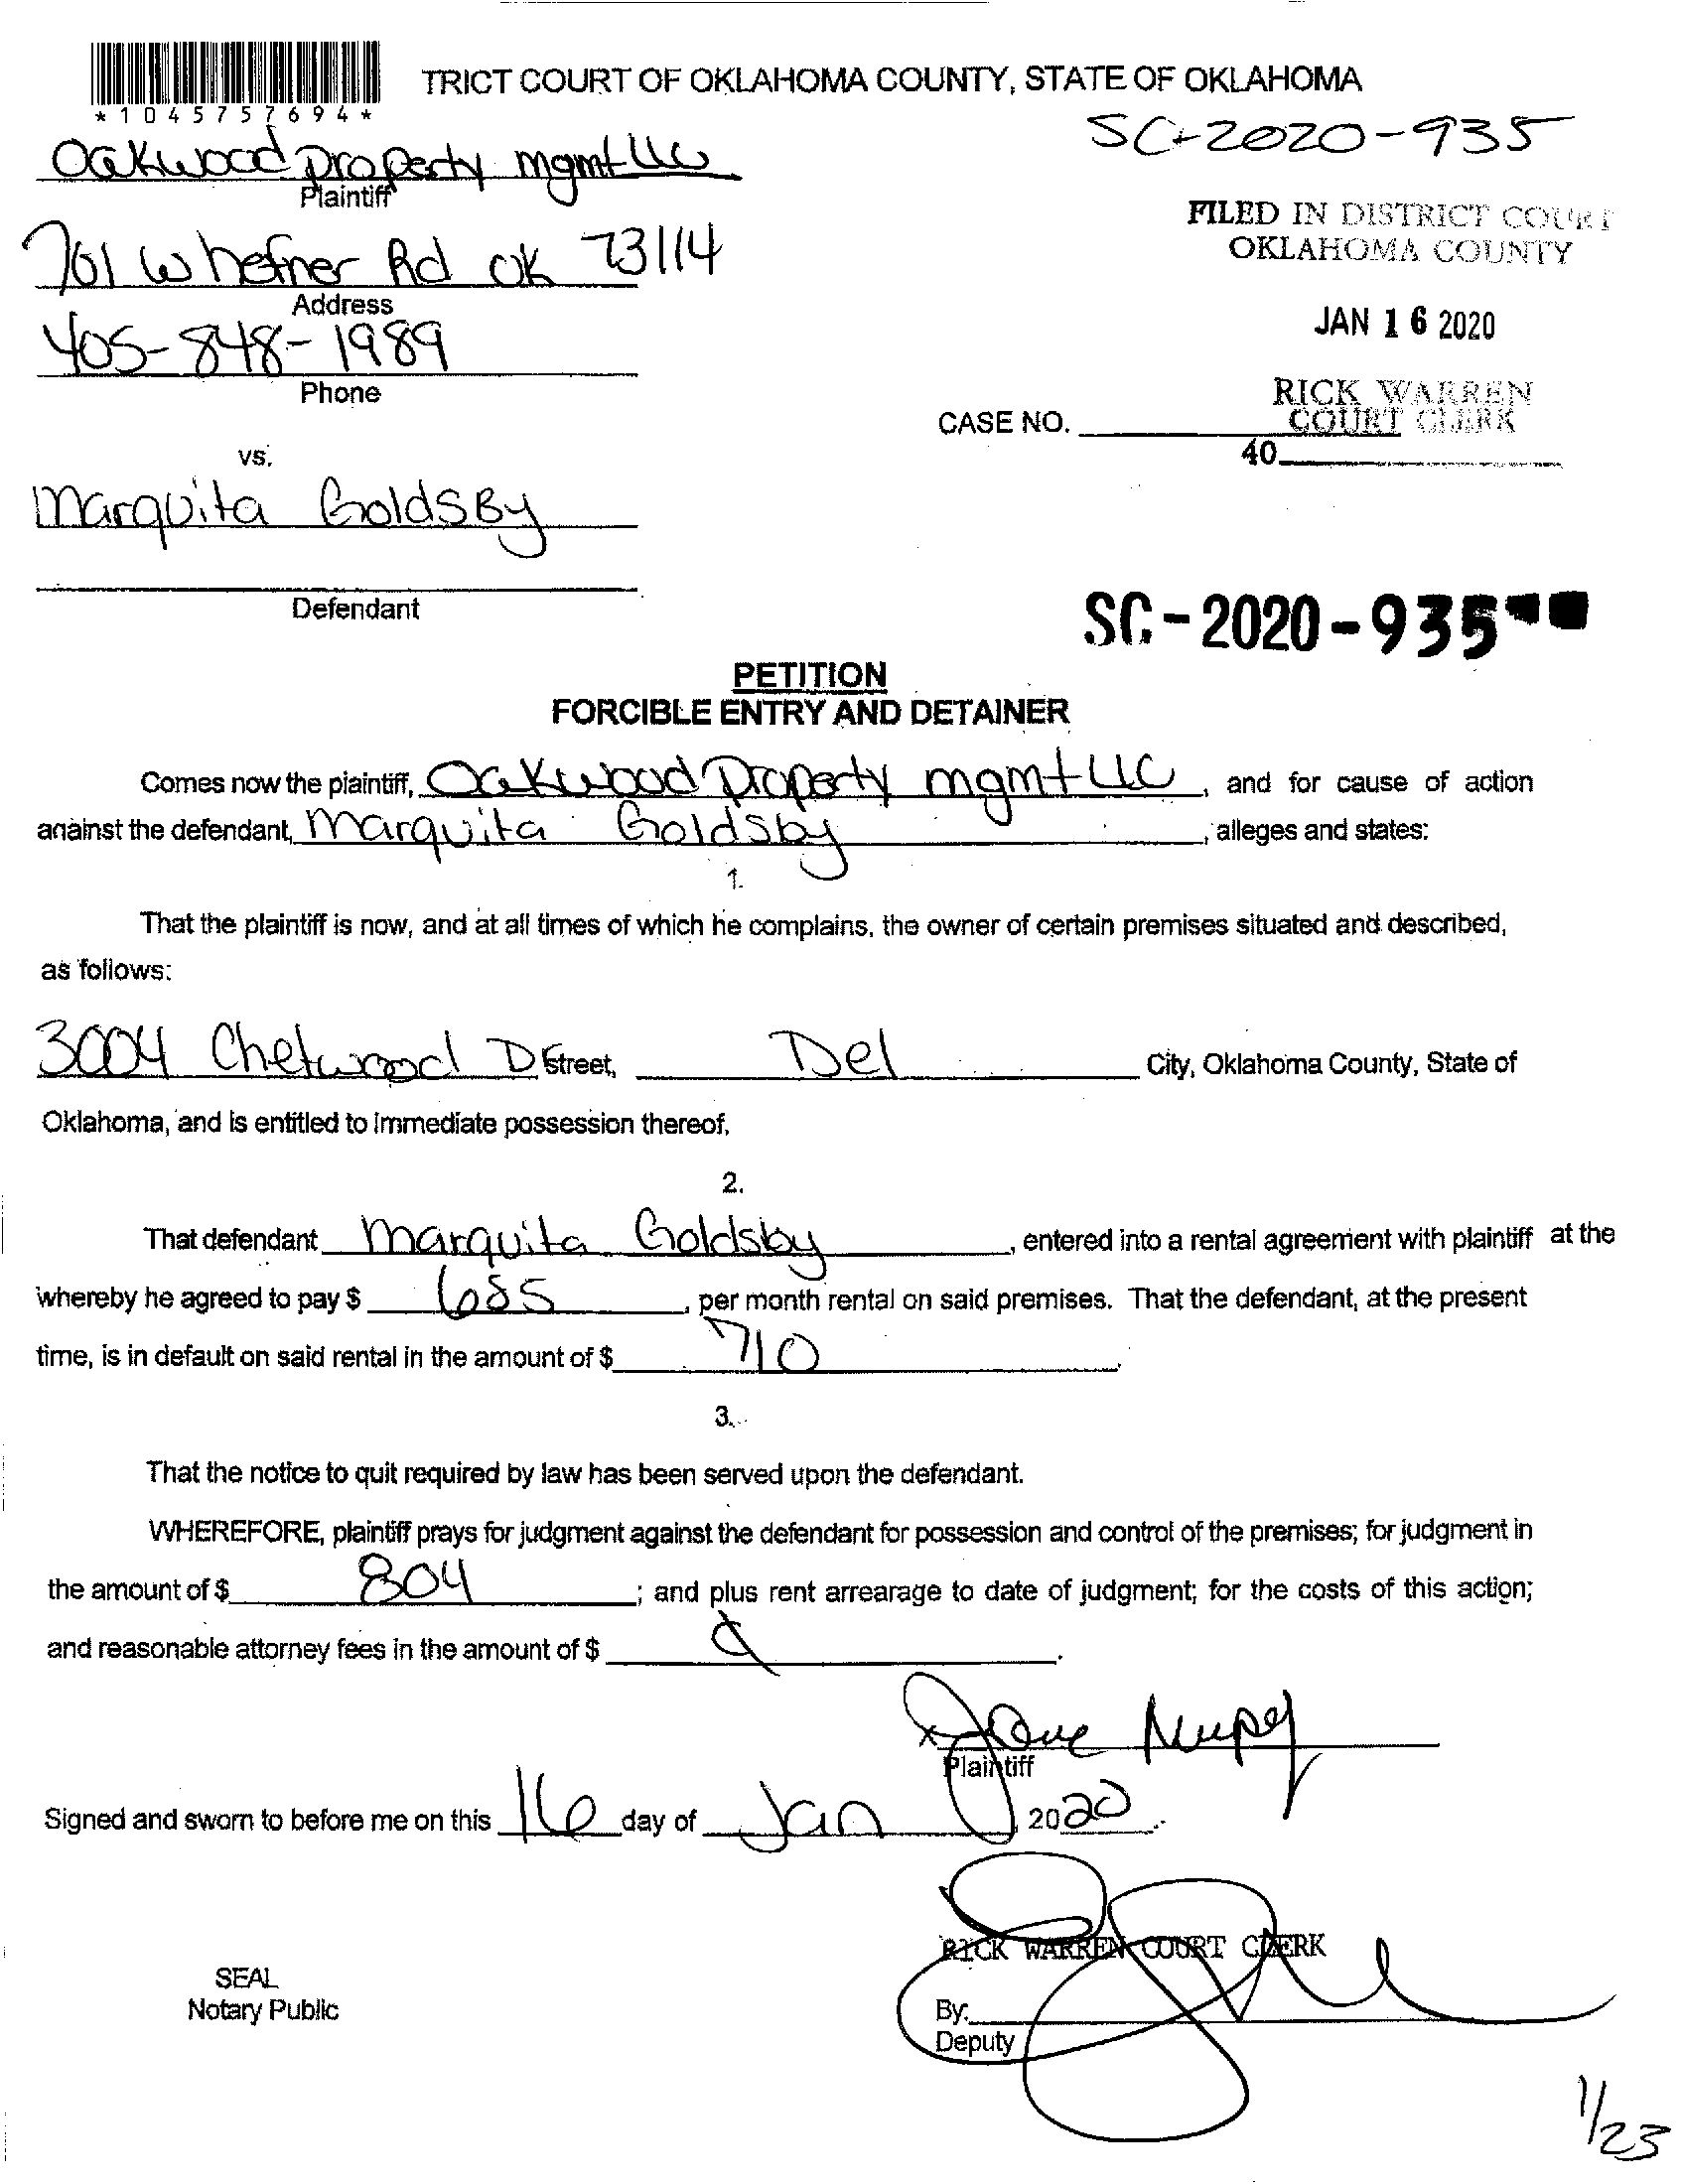 TRICT COURT OF OKLAHOMA COUNTY, STATE OF OKLAHOMA
*1045757694*
SC-2020-935
Oakwood Property mgmt LLC
Plaintiff
FILED IN DISTRICT COURT
OKLAHOMA COUNTY
701 W hefner Rd OK 73114
Address
JAN 16 2020
405-848-1989
Phone
RICK WARREN
COURT CLERK
CASE NO.
40
vs.
Marquita GoldsBy
Defendant
SC-2020-935
PETITION
FORCIBLE ENTRY AND DETAINER
Comes now the plaintiff, Oakwood Property mgmt LLC, and for cause of action
against the defendant, Marquita Goldsby, alleges and states:
1.
That the plaintiff is now, and at all times of which he complains, the owner of certain premises situated and described,
as follows:
3004 Chetwood D Street, Del City, Oklahoma County, State of
Oklahoma, and is entitled to immediate possession thereof.
2.
That defendant Marquita Goldsby, entered into a rental agreement with plaintiff at the
whereby he agreed to pay $ 685, per month rental on said premises. That the defendant, at the present
time, is in default on said rental in the amount of $ 710.
3.
That the notice to quit required by law has been served upon the defendant.
WHEREFORE, plaintiff prays for judgment against the defendant for possession and control of the premises; for judgment in
the amount of $ 804; and plus rent arrearage to date of judgment; for the costs of this action;
and reasonable attorney fees in the amount of $
Plaintiff
Signed and sworn to before me on this 16 day of Jan, 2020.
RICK WARREN COURT CLERK
SEAL
Notary Public
By:
Deputy
1/23